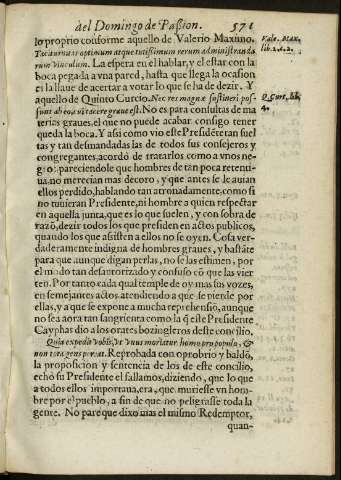 del Domingo de Passion. 571
lo proprio conforme aquello de Valerio Maximo.
Taciturnitas optimum atque tutissimum rerum administrandarum
rum vinculum. La espera en el hablar, y el estar con la
boca pegada a vna pared, hasta que llega la ocasion
es la llaue de acertar a votar lo que se ha de dezir. Y
aquello de Quinto Curcio. Nec res magnæ sustineri pos-
sunt ab eo cui tacere graue est. No es para consultas de ma
terias graues, el que no puede acabar consigo tener
queda la boca. Y asi como vio este Presidẽte tan suel
tas y tan desmandadas las de todos sus consejeros y
congregantes, acordó de tratarlos como a vnos ne-
gros: pareciendole que hombres de tan poca retenti-
ua, no merecian mas decoro, y que antes se le auian
ellos perdido, hablando tan atronadamente, como si
no tuuieran Presidente, ni hombre a quien respectar
en aquella junta, que es lo que suelen, y con sobra de
razõ, dezir todos los que presiden en actos publicos,
quando los que asisten a ellos no se oyen. Cosa ver-
daderamente indigna de hombres graues, y bastãte
para que aunque digan perlas, no se las estimen, por
el modo tan desautorizado y confuso cõ que las vier
ten. Por tanto cada qual temple de oy mas sus vozes,
en semejantes actos atendiendo a que se pierde por
ellas, y a que se expone a mucha reprehensiõ, aunque
no sea aora tan sangrienta como la q̃ este Presidente
Cayphas dio a los orates bozingleros deste concilio.
Quia expedit vobis, vt vnus moriatur homo pro populo, &
non tota gens pereat. Reprobada con oprobrio y baldõ,
la proposicion y sentencia de los de este concilio,
echó su Presidente el fallamos, diziendo, que lo que
a todos ellos importaua, era, que muriesse vn hom-
bre por el pueblo, a fin de que no peligrasse toda la
gente. No parece que dixo mas el mismo Redemptor,
quan-
Vale. Max.
lib. 2. c. 2.
Q. Curt. lib.
4.